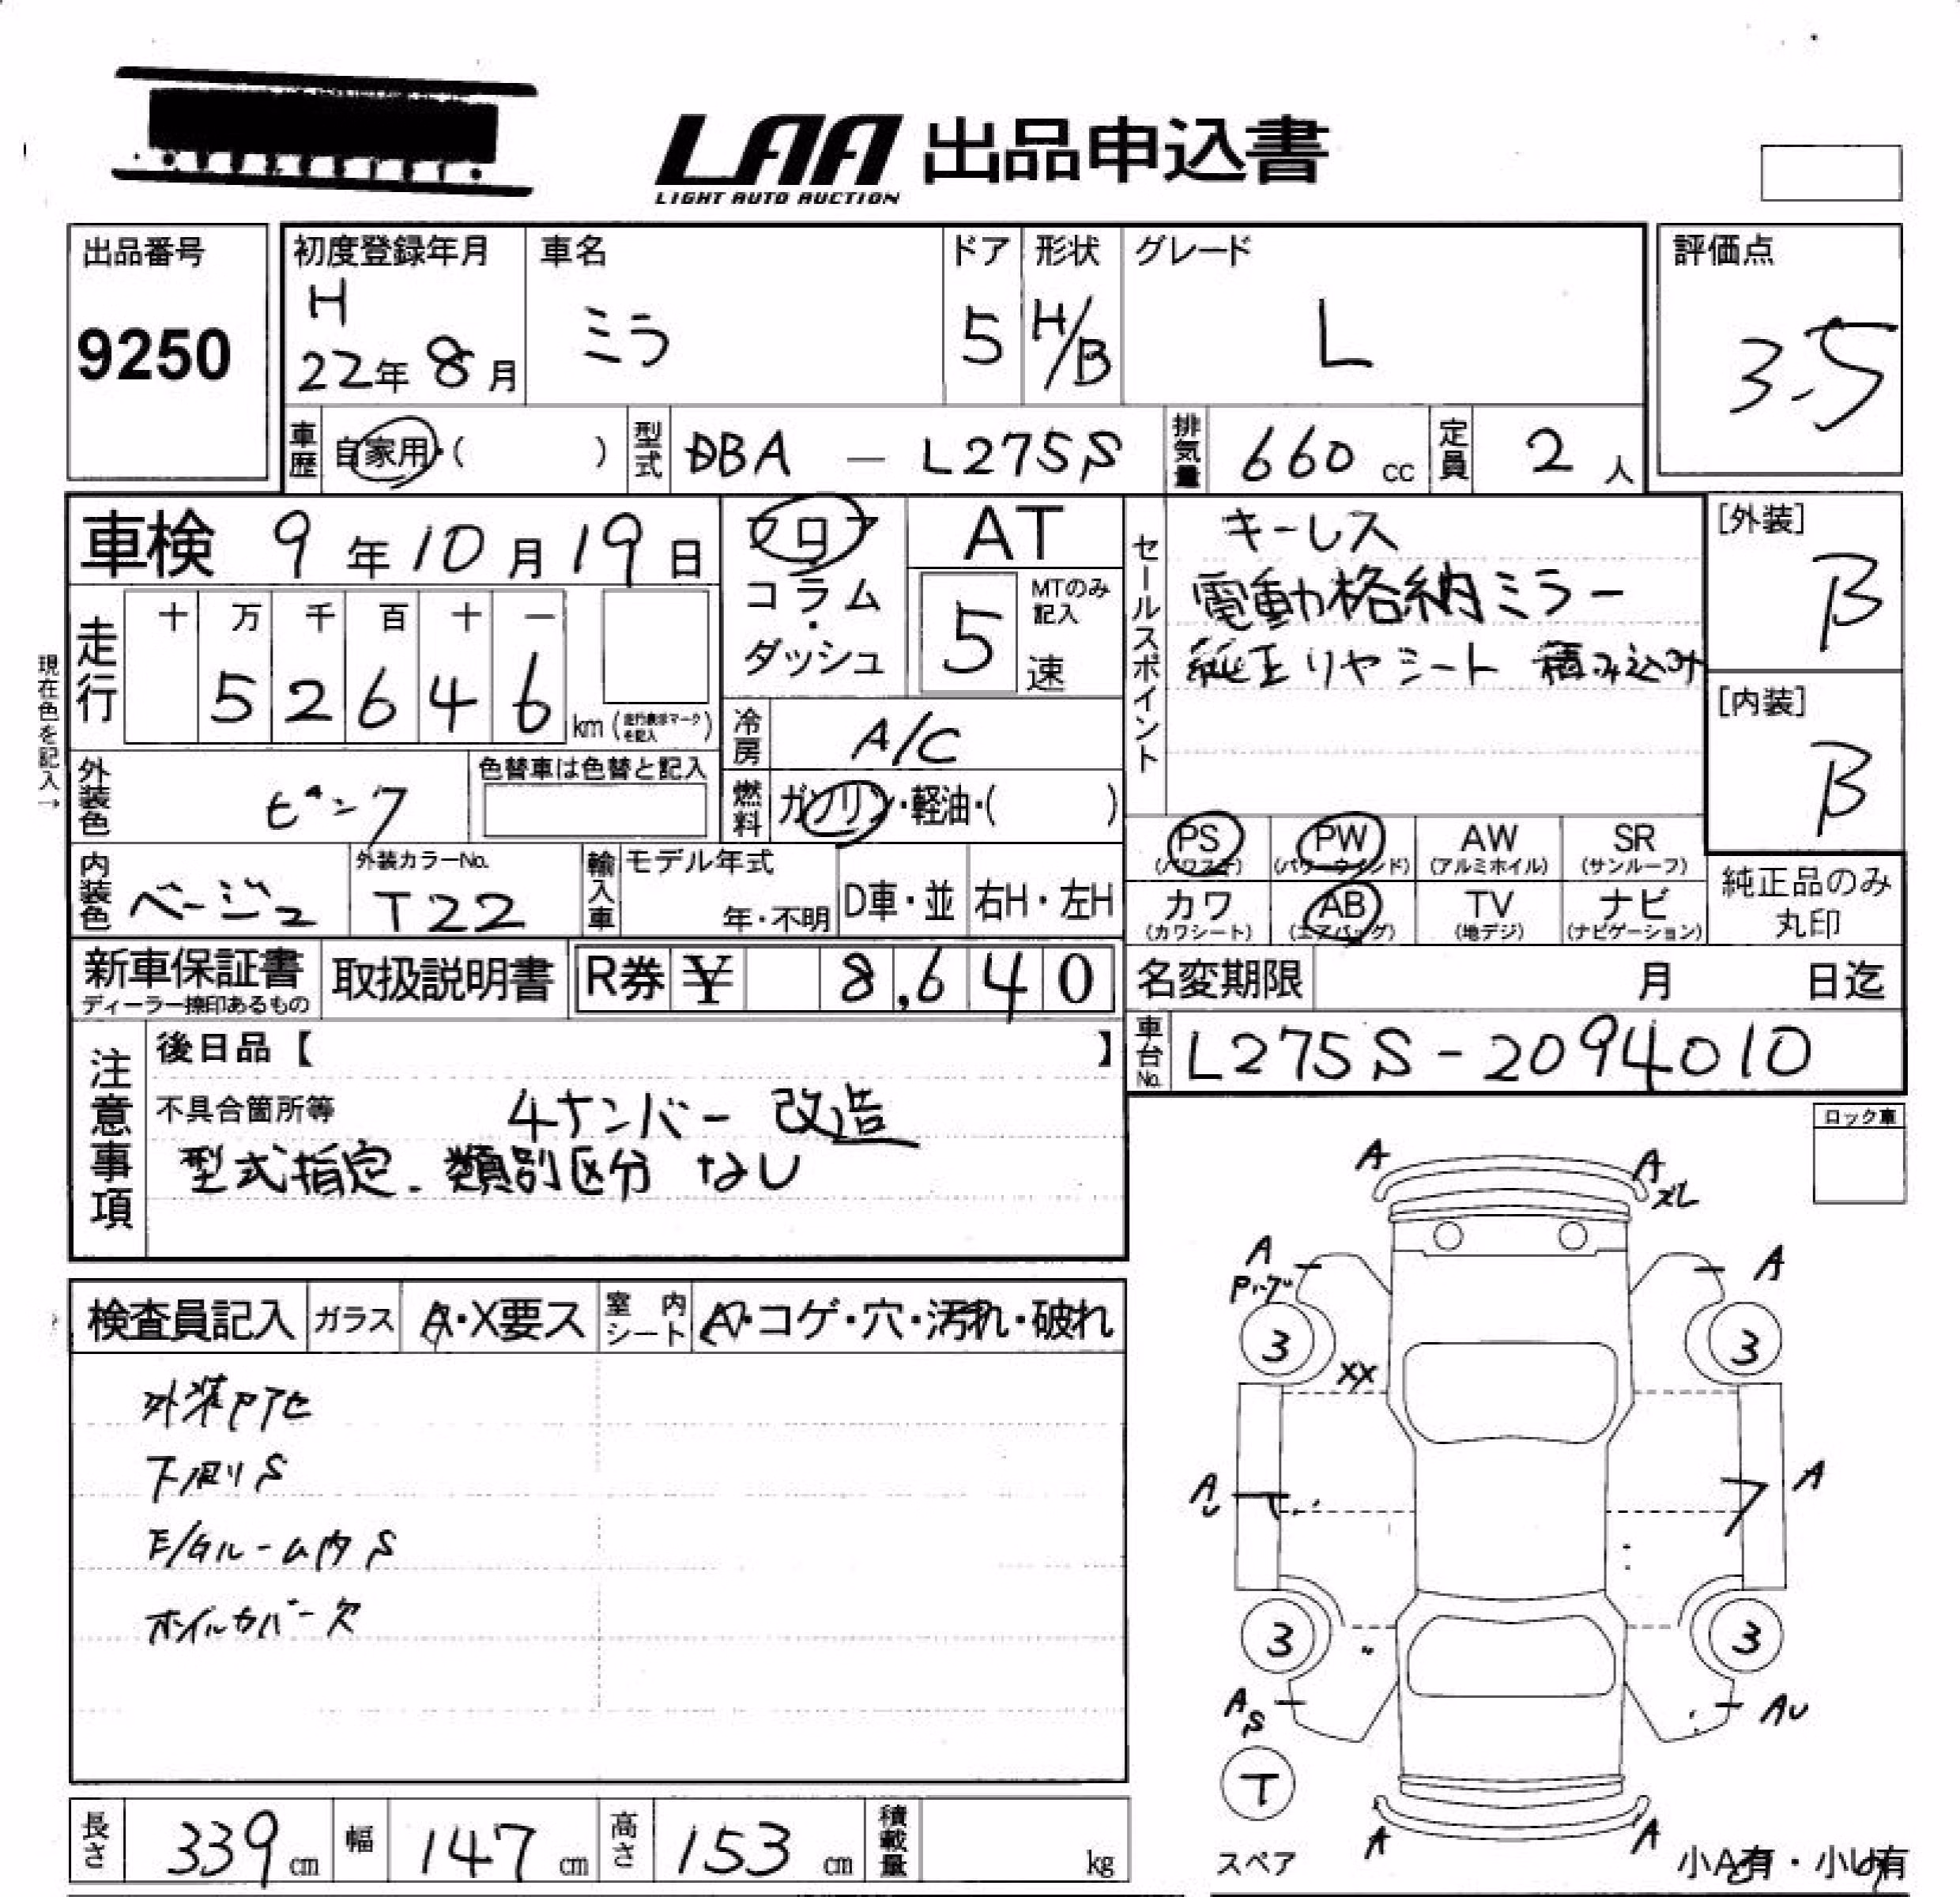 LAA 出品申込書
LIGHT AUTO AUCTION
出品番号
9250
初度登録年月
H
22年 8月
車名
ミラ
ドア
5
形状
H/B
グレード
L
評価点
3.5
車歴 自家用・( )
型式 DBA － L275S
排気量 660 cc
定員 2 人
車検 9年10月19日
走行
十 万 千 百 十 一
5 2 6 4 6 km (走行表示マークを記入)
現在色を記入→
フロア
コラム
・
ダッシュ
AT
5
MTのみ
記入
速
冷房 A/C
燃料 ガソリン・軽油・( )
セールスポイント
キーレス
電動格納ミラー
純正リヤシート 積み込み
[外装]
B
[内装]
B
外装色 ピンク
色替車は色替と記入
内装色 ベージュ
外装カラーNo.
T22
輸入車
モデル年式
年・不明
D車・並
右H・左H
PS
(パワステ)
PW
(パワーウインド)
AW
(アルミホイル)
SR
(サンルーフ)
カワ
(カワシート)
AB
(エアバッグ)
TV
(地デジ)
ナビ
(ナビゲーション)
純正品のみ
丸印
新車保証書
ディーラー捺印あるもの
取扱説明書
R券 ¥ 8,640
名変期限 月 日迄
車台No. L275S-2094010
注意事項
後日品【 】
不具合箇所等 4ナンバー 改造
型式指定. 類別区分 なし
ロック車
検査員記入
ガラス A・X要ス
室内シート A・コゲ・穴・汚れ・破れ
下廻りS
E/Gルーム内S
ホイルカバー欠
A
A
ズレ
A
A
3
3
XX
A
U
A
3
3
A
S
AU
T
スペア
A
A
小A有・小U有
長さ 339 cm
幅 147 cm
高さ 153 cm
積載量 kg